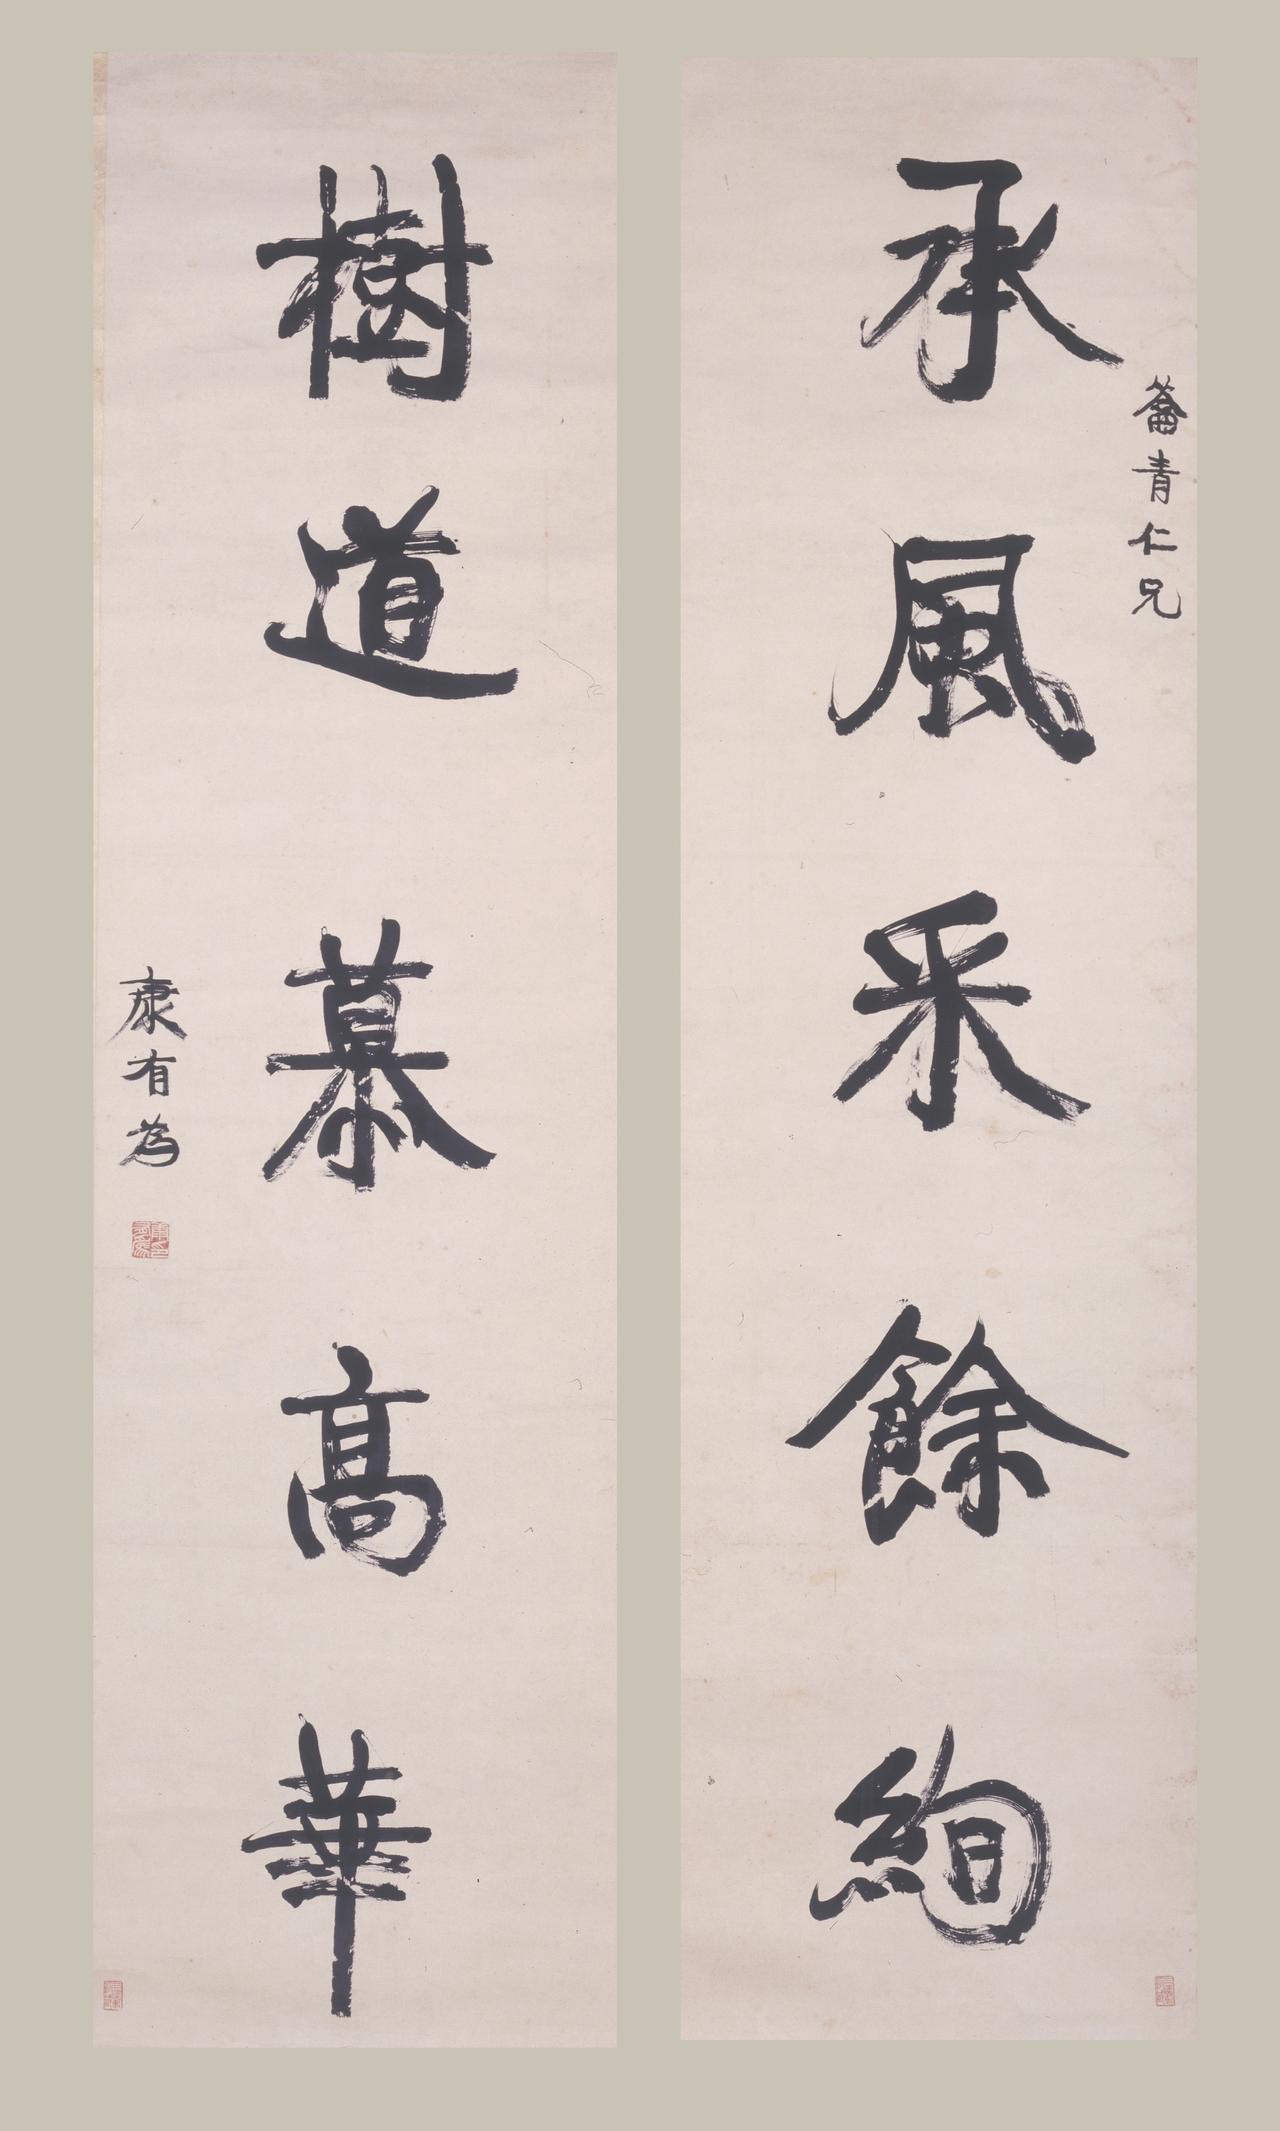 承風采餘絢
籥青仁兄
樹道慕高華
康有為